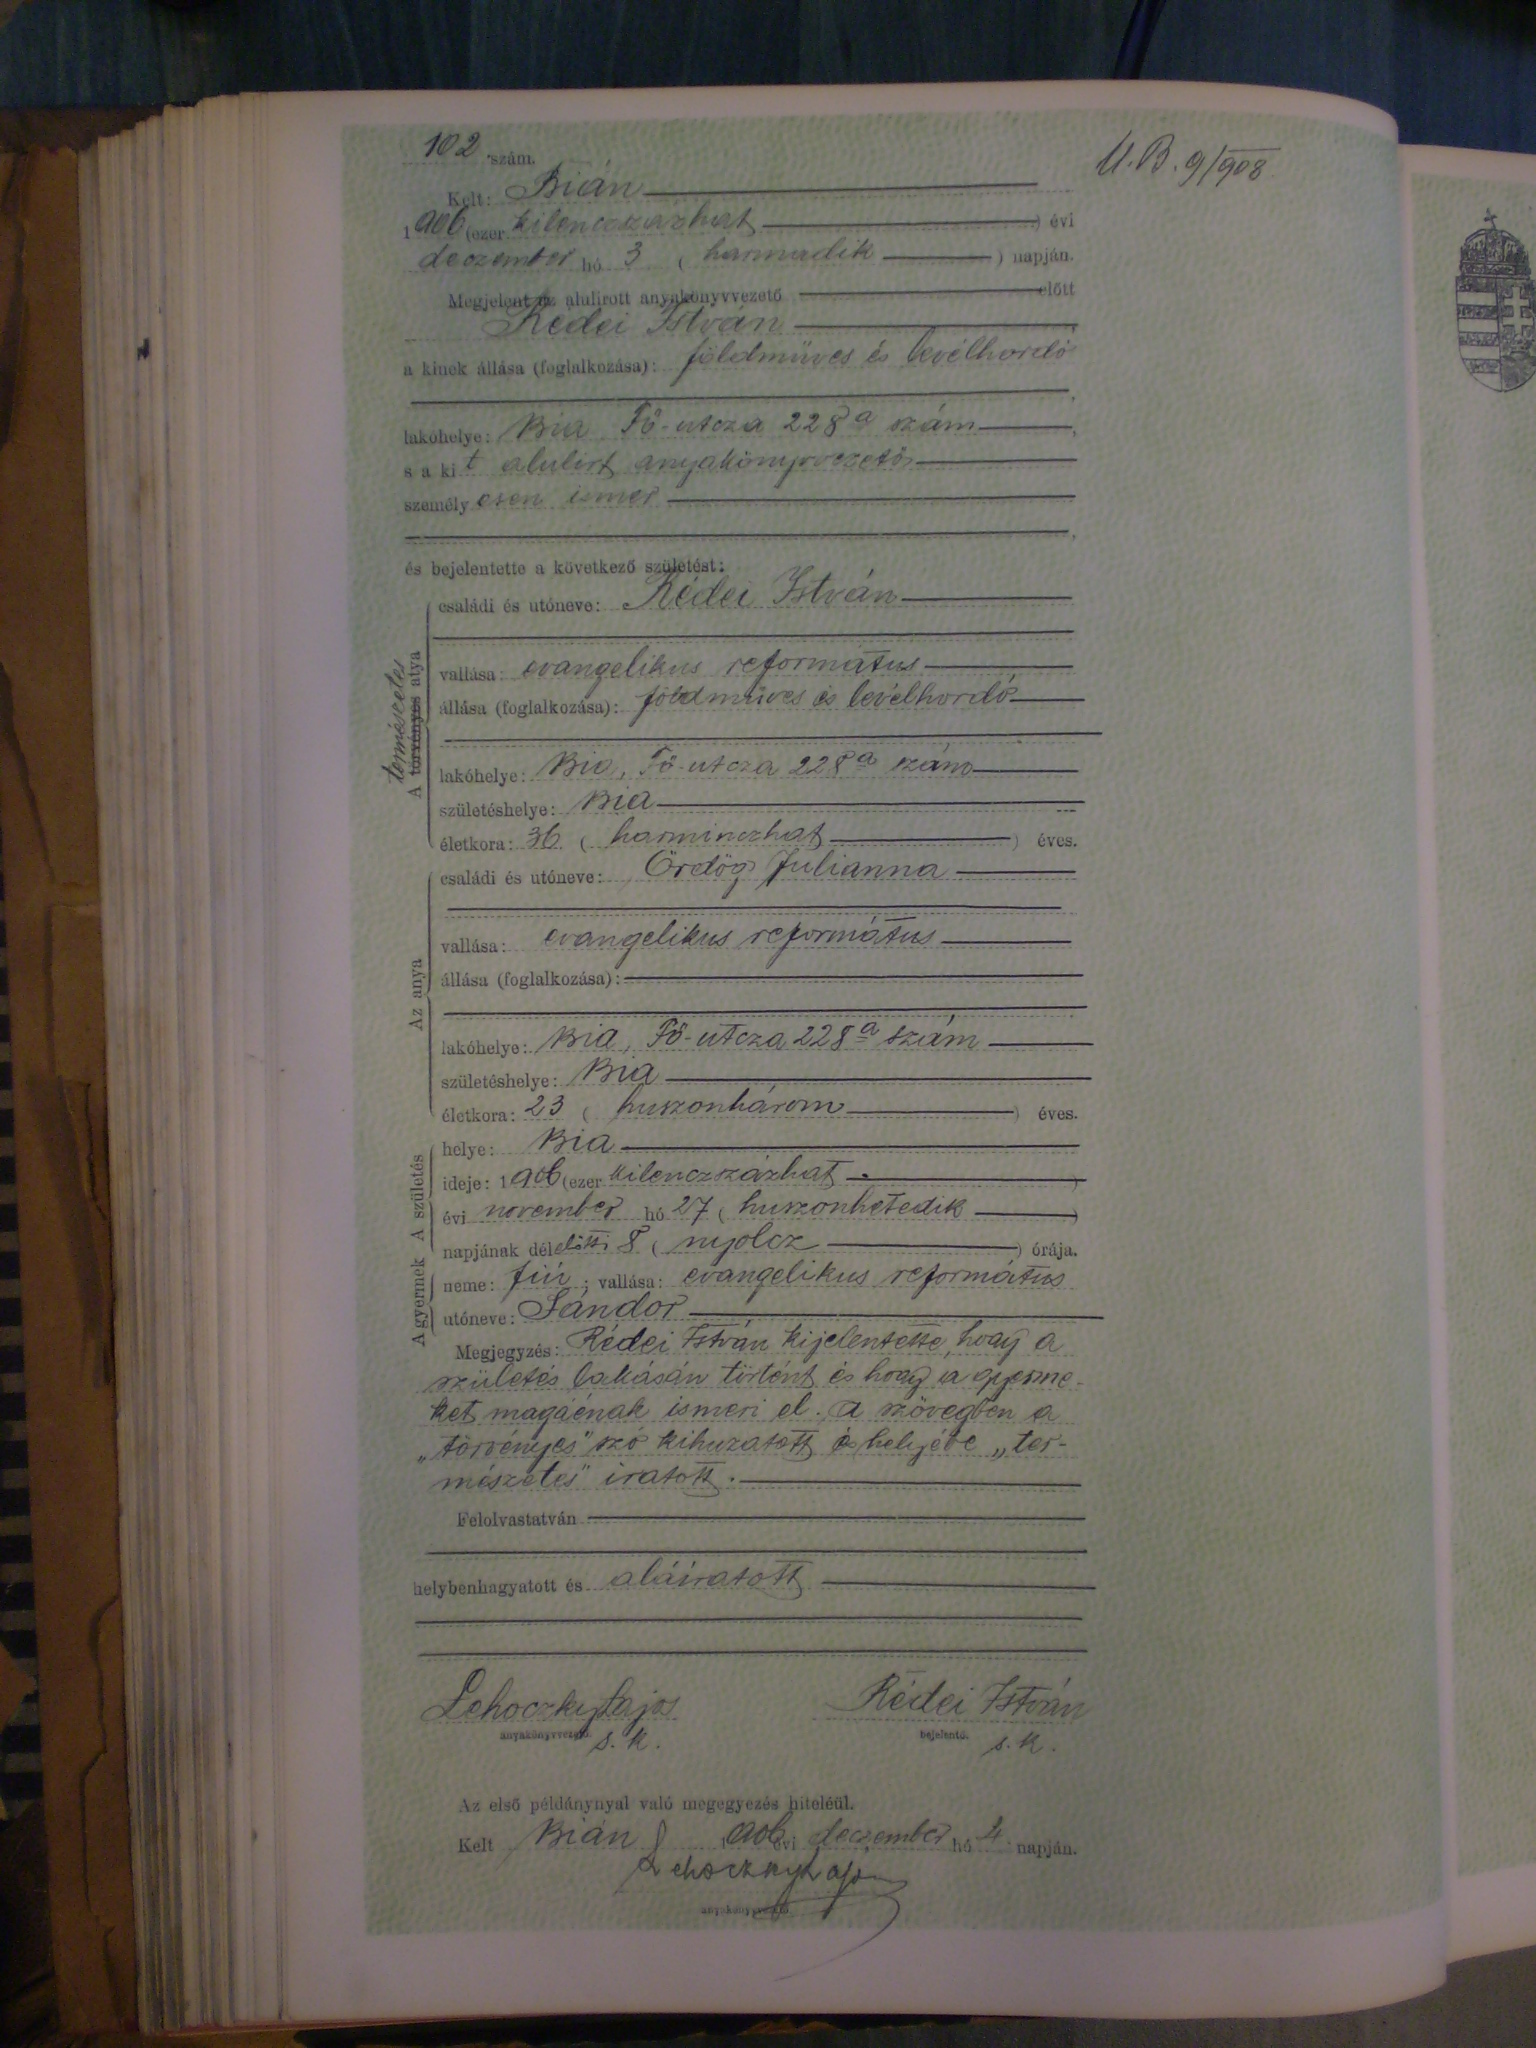 102 szám.
U. B. 9/908
Kelt: Bián
1906 (ezer kilenczszázhat) évi
deczember hó 3 (harmadik) napján.
Megjelent az alulírott anyakönyvvezető előtt
Rédei István
a kinek állása (foglalkozása): földmüves és levélhordó
lakóhelye: Bia, Fő-utcza 228 a szám,
s a kit alulirt anyakönyvvezető
személyesen ismer
és bejelentette a következő születést:
A törvényes atya
természetes
családi és utóneve: Rédei István
vallása: evangelikus református
állása (foglalkozása): földmüves és levélhordó
lakóhelye: Bia, Fő-utcza 228 a szám
születéshelye: Bia
életkora: 36 (harminczhat) éves.
Az anya
családi és utóneve: Ördög Julianna
vallása: evangelikus református
állása (foglalkozása):
lakóhelye: Bia, Fő-utcza 228 a szám
születéshelye: Bia
életkora: 23 (huszonhárom) éves.
A születés
helye: Bia
ideje: 1906 (ezer kilenczszázhat)
évi november hó 27 (huszonhetedik)
napjának délelőtti 8 (nyolcz) órája.
A gyermek
neme: fiú; vallása: evangelikus református
utóneve: Sándor
Megjegyzés: Rédei István kijelentette, hogy a
születés lakásán történt és hogy a gyerme-
ket magáénak ismeri el. A szövegben a
„törvényes" szó kihuzatott és helyébe „ter-
mészetes" iratott.
Felolvastatván
helybenhagyatott és aláíratott
Lehoczky Lajos Rédei István
anyakönyvvezető. bejelentő.
s. k. s. k.
Az első példánynyal való megegyezés hiteléül.
Kelt Bián 1906 évi deczember hó 4 napján.
Lehoczky Lajos
anyakönyvvezető